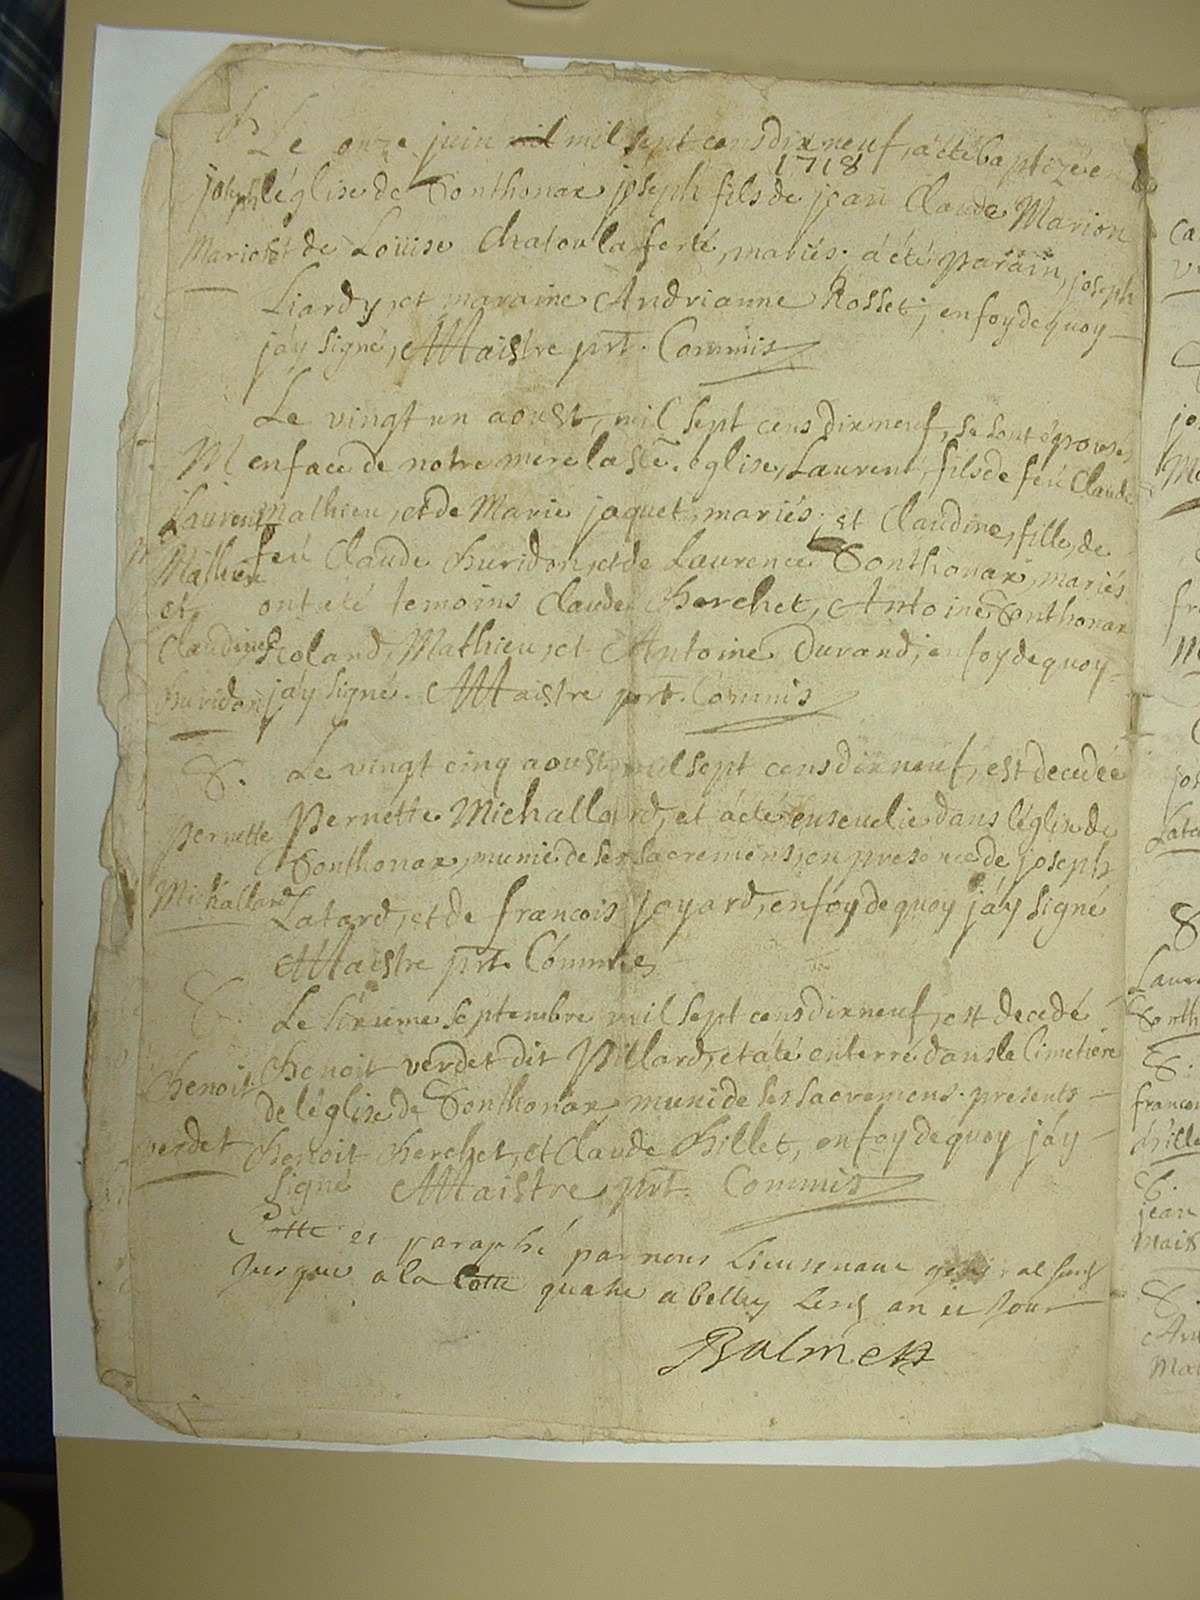 B. Le onze juin mil mil sept cens dix neuf, a été baptizé en
1718
joseph léglise de Sonthonax joseph fils de jean Claude Marion
Marion et de Louise Chatoulaferté, mariés; a été parain, joseph
Liardy, et maraine Andrianne Rosset; en foy de quoy
j'ay signé, Maistre prt. Commis
Le vingt un aoust, mil sept cens dix neuf, se sont épousés
M en face de notre mere la ste. église, Laurent, fils de feu Claude
Laurent Mathieu, et de Marie jaquet, mariés; et Claudine, fille, de
Mathieu feu Claude Buridon, et de Laurence Sonthonax, mariés
et ont été temoins Claude Berchet, Antoine Sonthonax
Claudine Roland, Mathieu, et Antoine Durand, en foy de quoy
Buridon j'ay signé. Maistre prt. Commis
S. Le vingt cinq aoust mil sept cens dix neuf, est decedée
Pernette Pernette Michallard, et a été ensevelie dans léglise de
Sonthonax, munie de ses sacremens, en presence de joseph
Michallard Latard, et de francois Joyard, en foy de quoy j'ay signé
Maistre prt. Commis
S. Le sixieme septembre mil sept cens dix neuf, est decedé
Benoit Benoit verdet dit Pillard, et a été enterré dans le Cimetiere
de léglise de Sonthonax, muni de ses sacremens. presents
verdet Benoit Berchet, et Claude Billet, en foy de quoy j'ay
signé Maistre prt. Commis
Cotté et paraphé par nous Lieutenant general
Jusque a la Cotte quatre a belley an et Jour
Balme
Laure
Sonth
S.
francois
Bille
S.
jean
S.